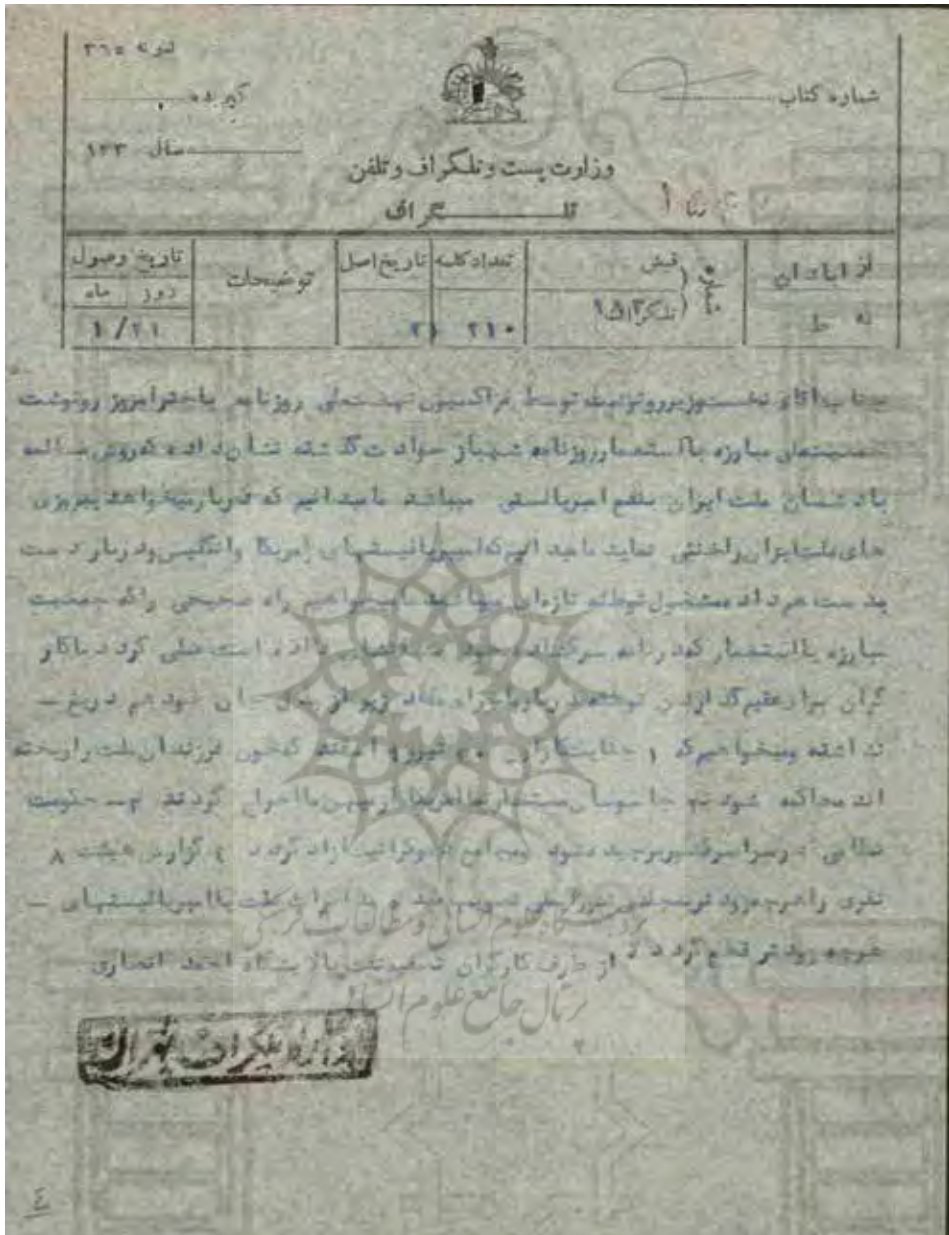 نمره ۳۶۵
شماره کتاب
گیرنده
سال ۱۳۳
وزارت پست و تلگراف و تلفن
تلگراف
از ابادان
به ط
شماره
قبض
تلگراف ۱۵۳
تعداد کلمه
۲۱۰
تاریخ اصل
۲۱
توضیحات
تاریخ وصول
روز ماه
۲۱/۱
جناب اقای نخست وزیر رونوشت توسط فراکسیون نهضت ملی روزنامه باختر امروز رونوشت
جمعیت ملی مبارزه با استعمار روزنامه شهباز حوادث گذشته نشان داده که روش مسالمه
با دشمنان ملت ایران بنفع امپریالستی میباشد ما میدانیم که دربار میخواهد پیروزی
های ملت ایران را خنثی نماید ما میدانیم که امپریالیستهای امریکا و انگلیس و دربار دست
بدست هم داده مشغول توطئه تازه‌ای میباشند ما میخواهیم راه صحیحی را که جمعیت
مبارزه با استعمار که در نامه سرگشاده خود داده است عملی گردد ما کار
گران برای عقیم گذاردن توطئه دربار و اجرای مفاد زیر از بذل جان خود هم دریغ –
نداشته و میخواهیم که ۱ جنایتکاران تیر و اسفند که خون فرزندان ملت را ریخته
اند محاکمه شوند جاسوسان مستشار نما امریکا از میهن ما اخراج گردند ۳– حکومت
نظامی در سراسر کشور برچیده شود ۴ گزارش هیئت ۸
نفری را هرچه زودتر مجلس شورایملی تصویب نماید ملت با امپریالیستهای –
هرچه زودتر قطع گردد از طرف کارگران تصفیه نفت پالایشگاه احمد انصاری
پژوهشگاه علوم انسانی و مطالعات فرهنگی
پرتال جامع علوم انسانی
اداره تلگراف تهران
٤